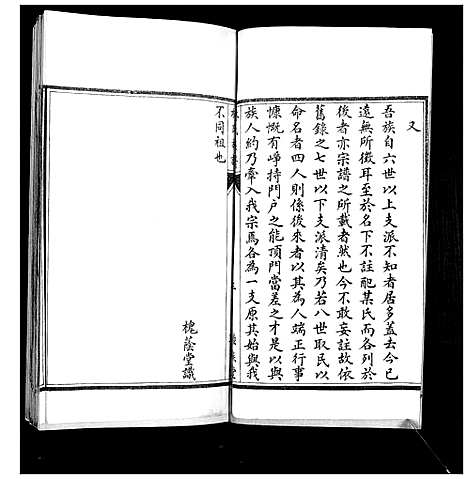 又
吾族自六世以上支派不知者居多蓋去今已
遠無所徵耳至於名下不註配某氏而各列於
後者亦宗譜之所載者然也今不敢妄註故依
舊錄之七世以下支派清矣乃若八世取民以
命名者四人則係後來者以其為人端正行事
慷慨有崢持門戶之能頂門當差之才是以與
族人約乃牽入我宗焉各為一支原其始與我
不同祖也
槐蔭堂識